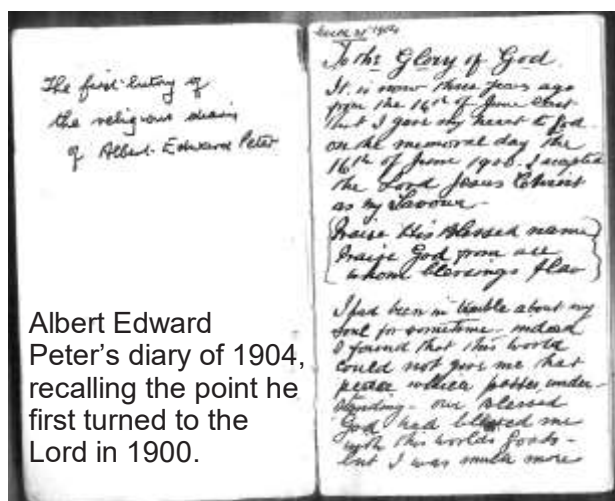 The first entry of
the religious diary
of Albert Edward Peter
Albert Edward
Peter's diary of 1904,
recalling the point he
first turned to the
Lord in 1900.
1904
To the Glory of God.
It is now three years ago
from the 16th of June last
that I gave my heart to God
on the memorial day the
16th of June 1900. I accepted
the Lord Jesus Christ
as my Saviour
Praise His Blessed name
Praise God from all
whom blessings flow
I had been in trouble about my
soul for sometime - indeed
I found that this world
could not give me that
peace which passes under-
standing - our Blessed
God had blessed me
with this worlds goods -
but I was much more